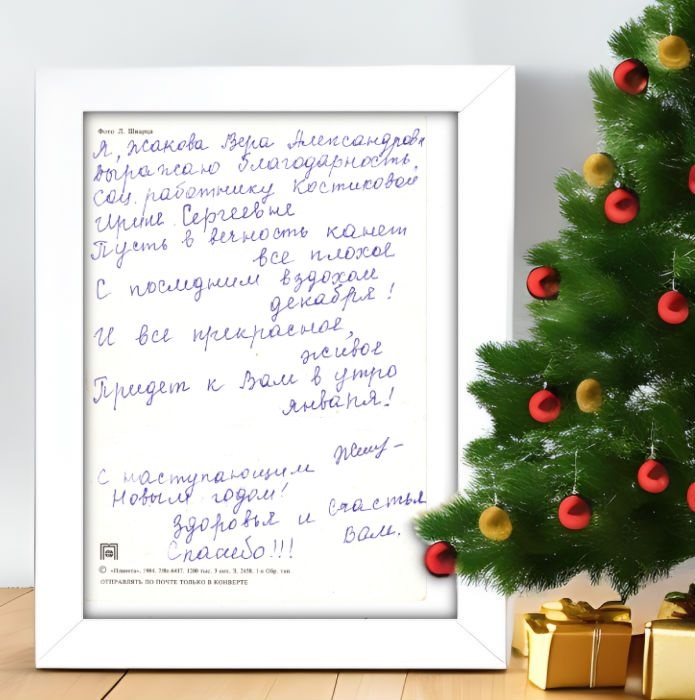 Фото Л. Шварца
Я, Жакова Вера Александровн
выражаю благодарность,
соц. работнику Костиковой
Ирине Сергеевне
Пусть в вечность канет
все плохое
С последним вздохом
декабря!
И все прекрасное,
живое
Придет к Вам в утро
января!
С наступающим
Новым годом!
Здоровья и счастья
Вам.
Спасибо!!!
© «Планета», 1984. 1200 тыс. 3 коп.
ОТПРАВЛЯТЬ ПО ПОЧТЕ ТОЛЬКО В КОНВЕРТЕ